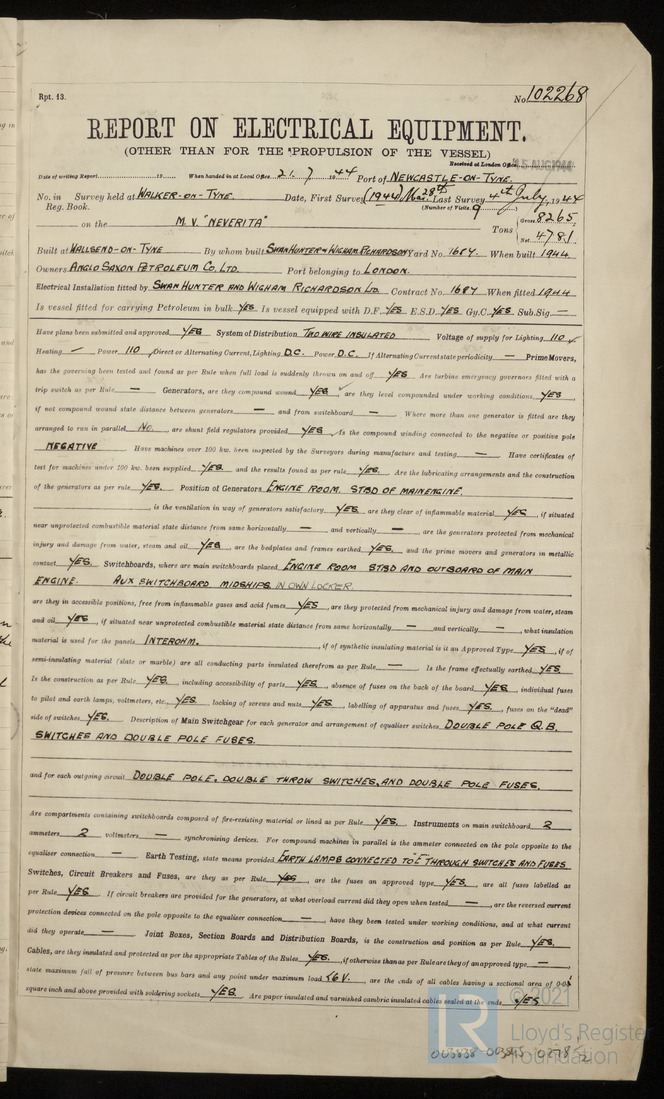 Rpt. 13.
No. 102268
REPORT ON ELECTRICAL EQUIPMENT.
(OTHER THAN FOR THE PROPULSION OF THE VESSEL)
Received at London Office 15 AUG 1944
Date of writing Report 19 When handed in at Local Office 21. 7 1944 Port of NEWCASTLE-ON-TYNE.
No. in Survey held at WALKER-ON-TYNE. Date, First Survey (1944) Mar. 28th Last Survey 4th July, 1944
Reg. Book. (Number of Visits 9
on the M.V. "NEVERITA" Tons { Gross 8265 Net 4781
Built at WALLSEND-ON-TYNE By whom built SWAN HUNTER & WIGHAM RICHARDSON Yard No. 1687 When built 1944
Owners ANGLO SAXON PETROLEUM CO. LTD. Port belonging to LONDON.
Electrical Installation fitted by SWAN HUNTER AND WIGHAM RICHARDSON LTD. Contract No. 1687 When fitted 1944
Is vessel fitted for carrying Petroleum in bulk YES Is vessel equipped with D.F. YES E.S.D. YES Gy.C. YES Sub.Sig. —
Have plans been submitted and approved YES System of Distribution TWO WIRE INSULATED Voltage of supply for Lighting 110
Heating — Power 110 Direct or Alternating Current, Lighting D.C. Power D.C. If Alternating Current state periodicity — Prime Movers,
has the governing been tested and found as per Rule when full load is suddenly thrown on and off YES Are turbine emergency governors fitted with a
trip switch as per Rule — Generators, are they compound wound YES, are they level compounded under working conditions YES,
if not compound wound state distance between generators — and from switchboard — Where more than one generator is fitted are they
arranged to run in parallel No., are shunt field regulators provided YES Is the compound winding connected to the negative or positive pole
NEGATIVE Have machines over 100 kw. been inspected by the Surveyors during manufacture and testing — Have certificates of
test for machines under 100 kw. been supplied YES and the results found as per rule YES. Are the lubricating arrangements and the construction
of the generators as per rule YES. Position of Generators ENGINE ROOM, STBD OF MAIN ENGINE.
, is the ventilation in way of generators satisfactory YES are they clear of inflammable material YES, if situated
near unprotected combustible material state distance from same horizontally — and vertically —, are the generators protected from mechanical
injury and damage from water, steam and oil YES, are the bedplates and frames earthed YES and the prime movers and generators in metallic
contact YES. Switchboards, where are main switchboards placed ENGINE ROOM STBD AND OUTBOARD OF MAIN
ENGINE. AUX SWITCHBOARD MIDSHIPS IN OWN LOCKER.
are they in accessible positions, free from inflammable gases and acid fumes YES, are they protected from mechanical injury and damage from water, steam
and oil YES, if situated near unprotected combustible material state distance from same horizontally — and vertically —, what insulation
material is used for the panels INTEROHM., if of synthetic insulating material is it an Approved Type YES, if of
semi-insulating material (slate or marble) are all conducting parts insulated therefrom as per Rule — Is the frame effectually earthed YES
Is the construction as per Rule YES, including accessibility of parts YES, absence of fuses on the back of the board YES, individual fuses
to pilot and earth lamps, voltmeters, etc., YES locking of screws and nuts YES, labelling of apparatus and fuses YES, fuses on the "dead"
side of switches YES. Description of Main Switchgear for each generator and arrangement of equaliser switches DOUBLE POLE Q.B.
SWITCHES AND DOUBLE POLE FUSES.
and for each outgoing circuit DOUBLE POLE, DOUBLE THROW SWITCHES, AND DOUBLE POLE FUSES.
Are compartments containing switchboards composed of fire-resisting material or lined as per Rule YES. Instruments on main switchboard 2
ammeters 2 voltmeters — synchronising devices. For compound machines in parallel is the ammeter connected on the pole opposite to the
equaliser connection — Earth Testing, state means provided EARTH LAMPS CONNECTED TO "E" THROUGH SWITCHES AND FUSES
Switches, Circuit Breakers and Fuses, are they as per Rule YES, are the fuses an approved type YES, are all fuses labelled as
per Rule YES If circuit breakers are provided for the generators, at what overload current did they open when tested —, are the reversed current
protection devices connected on the pole opposite to the equaliser connection —, have they been tested under working conditions, and at what current
did they operate — Joint Boxes, Section Boards and Distribution Boards, is the construction and position as per Rule YES.
Cables, are they insulated and protected as per the appropriate Tables of the Rules YES., if otherwise than as per Rule are they of an approved type —,
state maximum fall of pressure between bus bars and any point under maximum load <6 V., are the ends of all cables having a sectional area of 0.04
square inch and above provided with soldering sockets YES. Are paper insulated and varnished cambric insulated cables sealed at the ends YES
© 2021
LR
Lloyd's Register
Foundation
003838-003845-0278 1/2